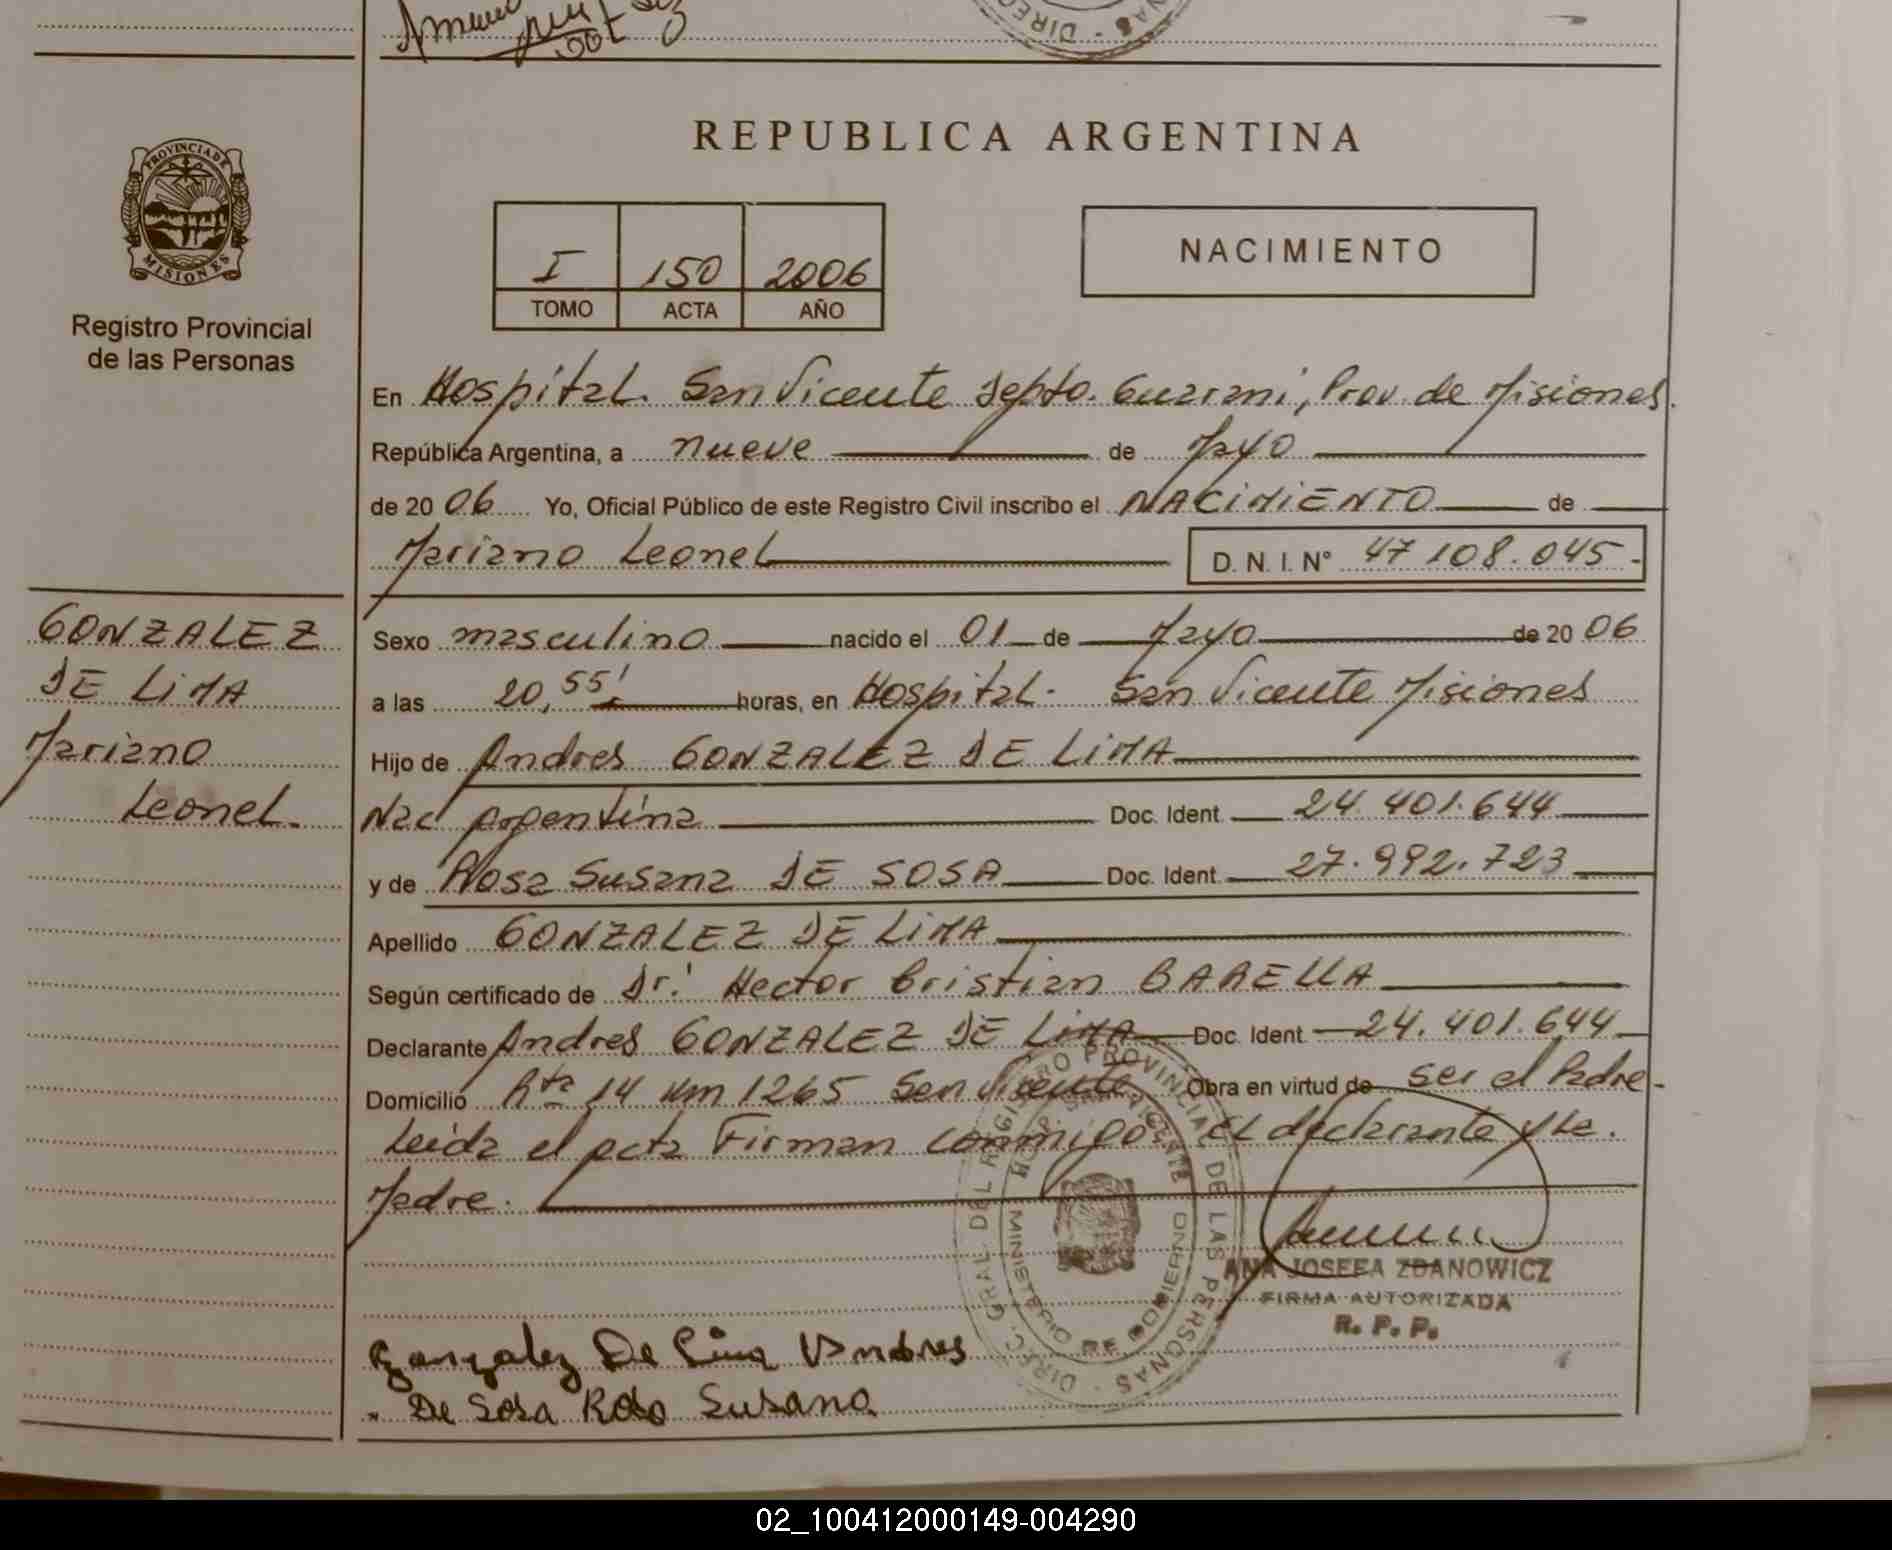 DIREC
NAS
REPUBLICA ARGENTINA
PROVINCIA DE
MISIONES
Registro Provincial
de las Personas
I 150 2006
TOMO ACTA AÑO
NACIMIENTO
En Hospital. San Vicente Depto. Guarani, Prov. de Misiones.
República Argentina, a nueve de Mayo
de 20 06 Yo, Oficial Público de este Registro Civil inscribo el NACIMIENTO de
Mariano Leonel D. N. I. N° 47 108.045-
GONZALEZ
DE LIMA
Mariano
Leonel.
Sexo masculino nacido el 01 de Mayo de 20 06
a las 20,55' horas, en Hospital. San Vicente Misiones
Hijo de Andres GONZALEZ DE LIMA
Nac argentina Doc. Ident. 24.401.644
y de Rosa Susana DE SOSA Doc. Ident. 27.992.723
Apellido GONZALEZ DE LIMA
Según certificado de Dr. Hector Cristian BARELLA
Declarante Andres GONZALEZ DE LIMA Doc. Ident. 24.401.644
Domicilio Rta 14 Km 1265 San Vicente Obra en virtud de ser el Padre-
Leida el acta Firman conmigo El declarante y la.
Madre.
DIREC. GRAL. DEL REGISTRO PROVINCIAL DE LAS PERSONAS
MINISTERIO DE GOBIERNO
ANA JOSEFA ZDANOWICZ
FIRMA AUTORIZADA
R. P. P.
Gonzalez De Lima Andres
De Sosa Rosa Susana
02_100412000149-004290